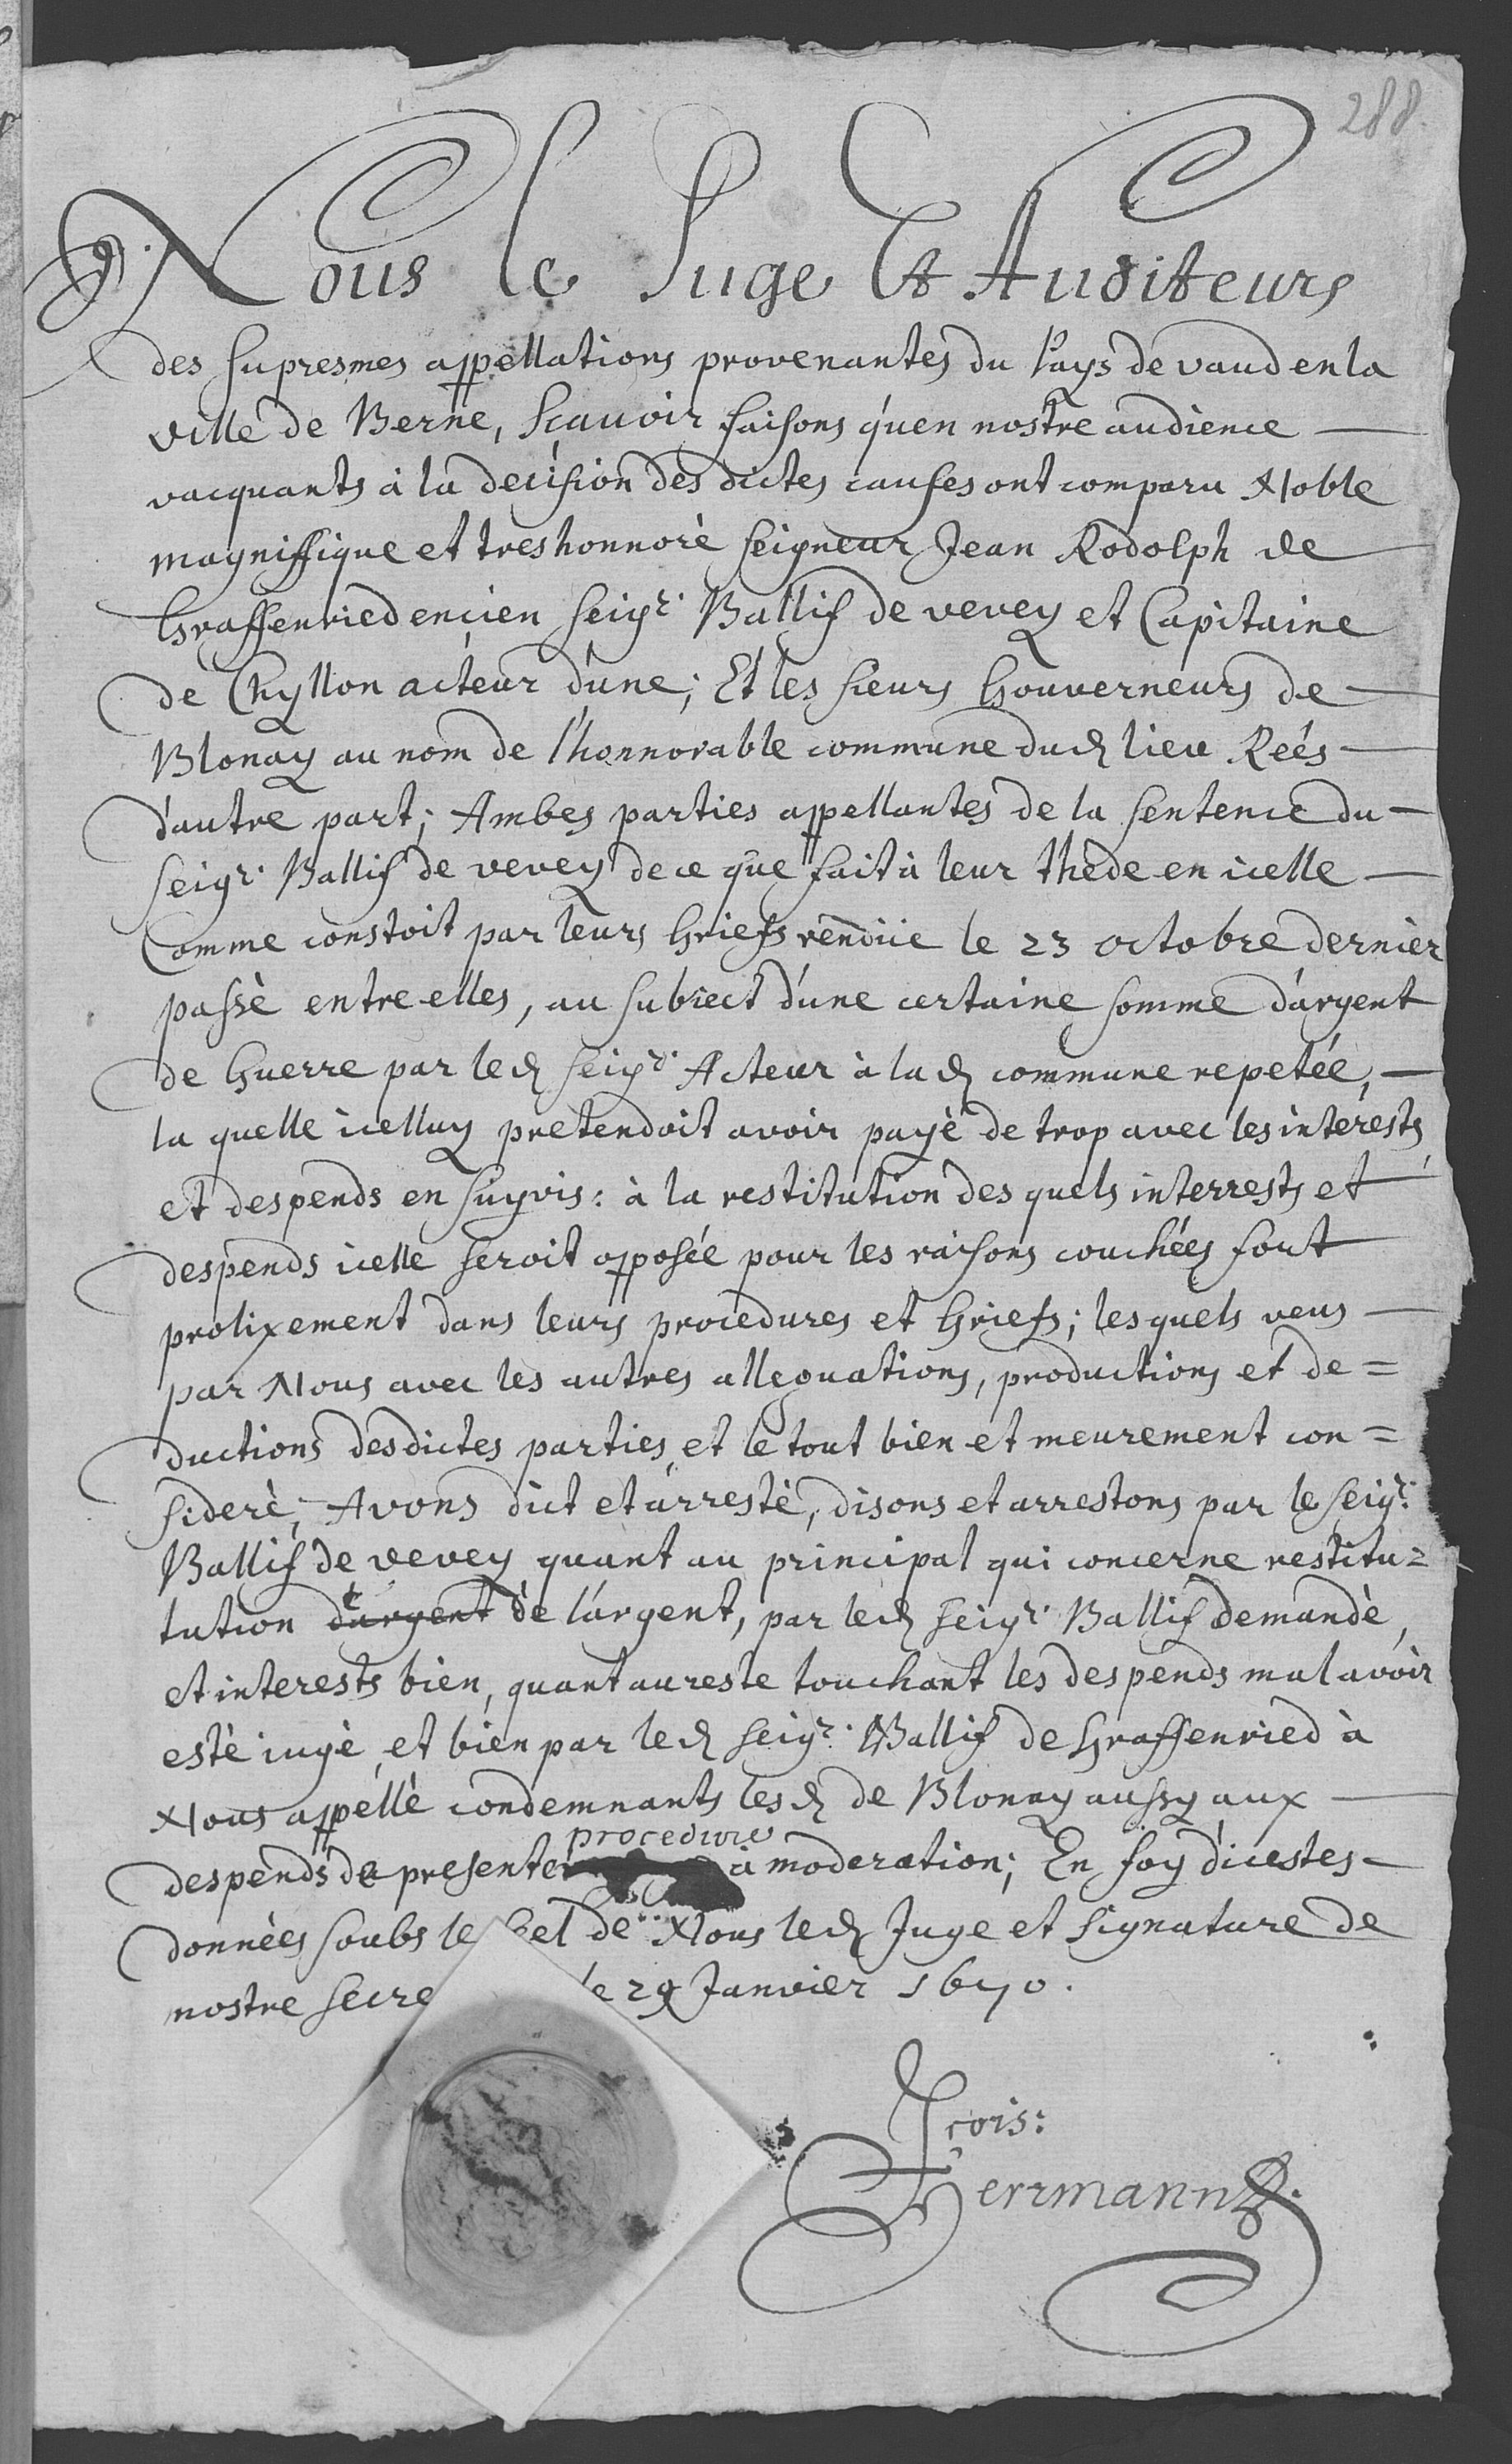 288.
Nous le Juge Et Auditeurs
des supresmes appellations provenantes du Pays de vaud en la
ville de Berne, sçauoir faisons qu'en nostre audience
vacquants à la decision des dictes causes ont comparu Noble
magniffique et treshonnorè seigneur Jean Rodolph de
Graffenried encien seigr. Ballif de vevey et Capitaine
de Chyllon acteur d'une; Et les sieurs Gouverneurs de
Blonay au nom de l'honnorable commune dud lieu Reés
d'autre part; Ambes parties appellantes de la sentence du
seigr. Ballif de vevey de ce que fait à leur thede en icelle
Comme constoit par leurs Griefs rendüe le 23 octobre dernier
passè entre elles, au subiect d'une certaine somme d'argent
de Guerre par led seigr. Acteur à lad commune repetée,
la quelle icelluy pretendoit avoir payè de trop avec les interests
et despends en suyvis: à la restitution des quels interrests et
despends icelle seroit opposée pour les raisons couchées fort
prolixement dans leurs procedures et Griefs; les quels veus
par Nous avec les autres alleguations, productions et de=
ductions desdictes parties, et le tout bien et meurement con=
siderè, Avons dict et arrestè, disons et arrestons par le seigr.
Ballif de vevey quant au principal qui concerne restitu=
tution d'argent de l'argent, par led seigr. Ballif demandè,
et interests bien, quant au reste touchant les despends mal avoir
estè iugè, et bien par led seigr. Ballif de Graffenried à
Nous appellè condemnants lesd de Blonay aussy aux
procedure
despends de presente à moderation; En foy d'icestes
données soubs le Sel de Nous led Juge et signature de
nostre secre le 29 Janvier 1670.
fçois:
Herrmann